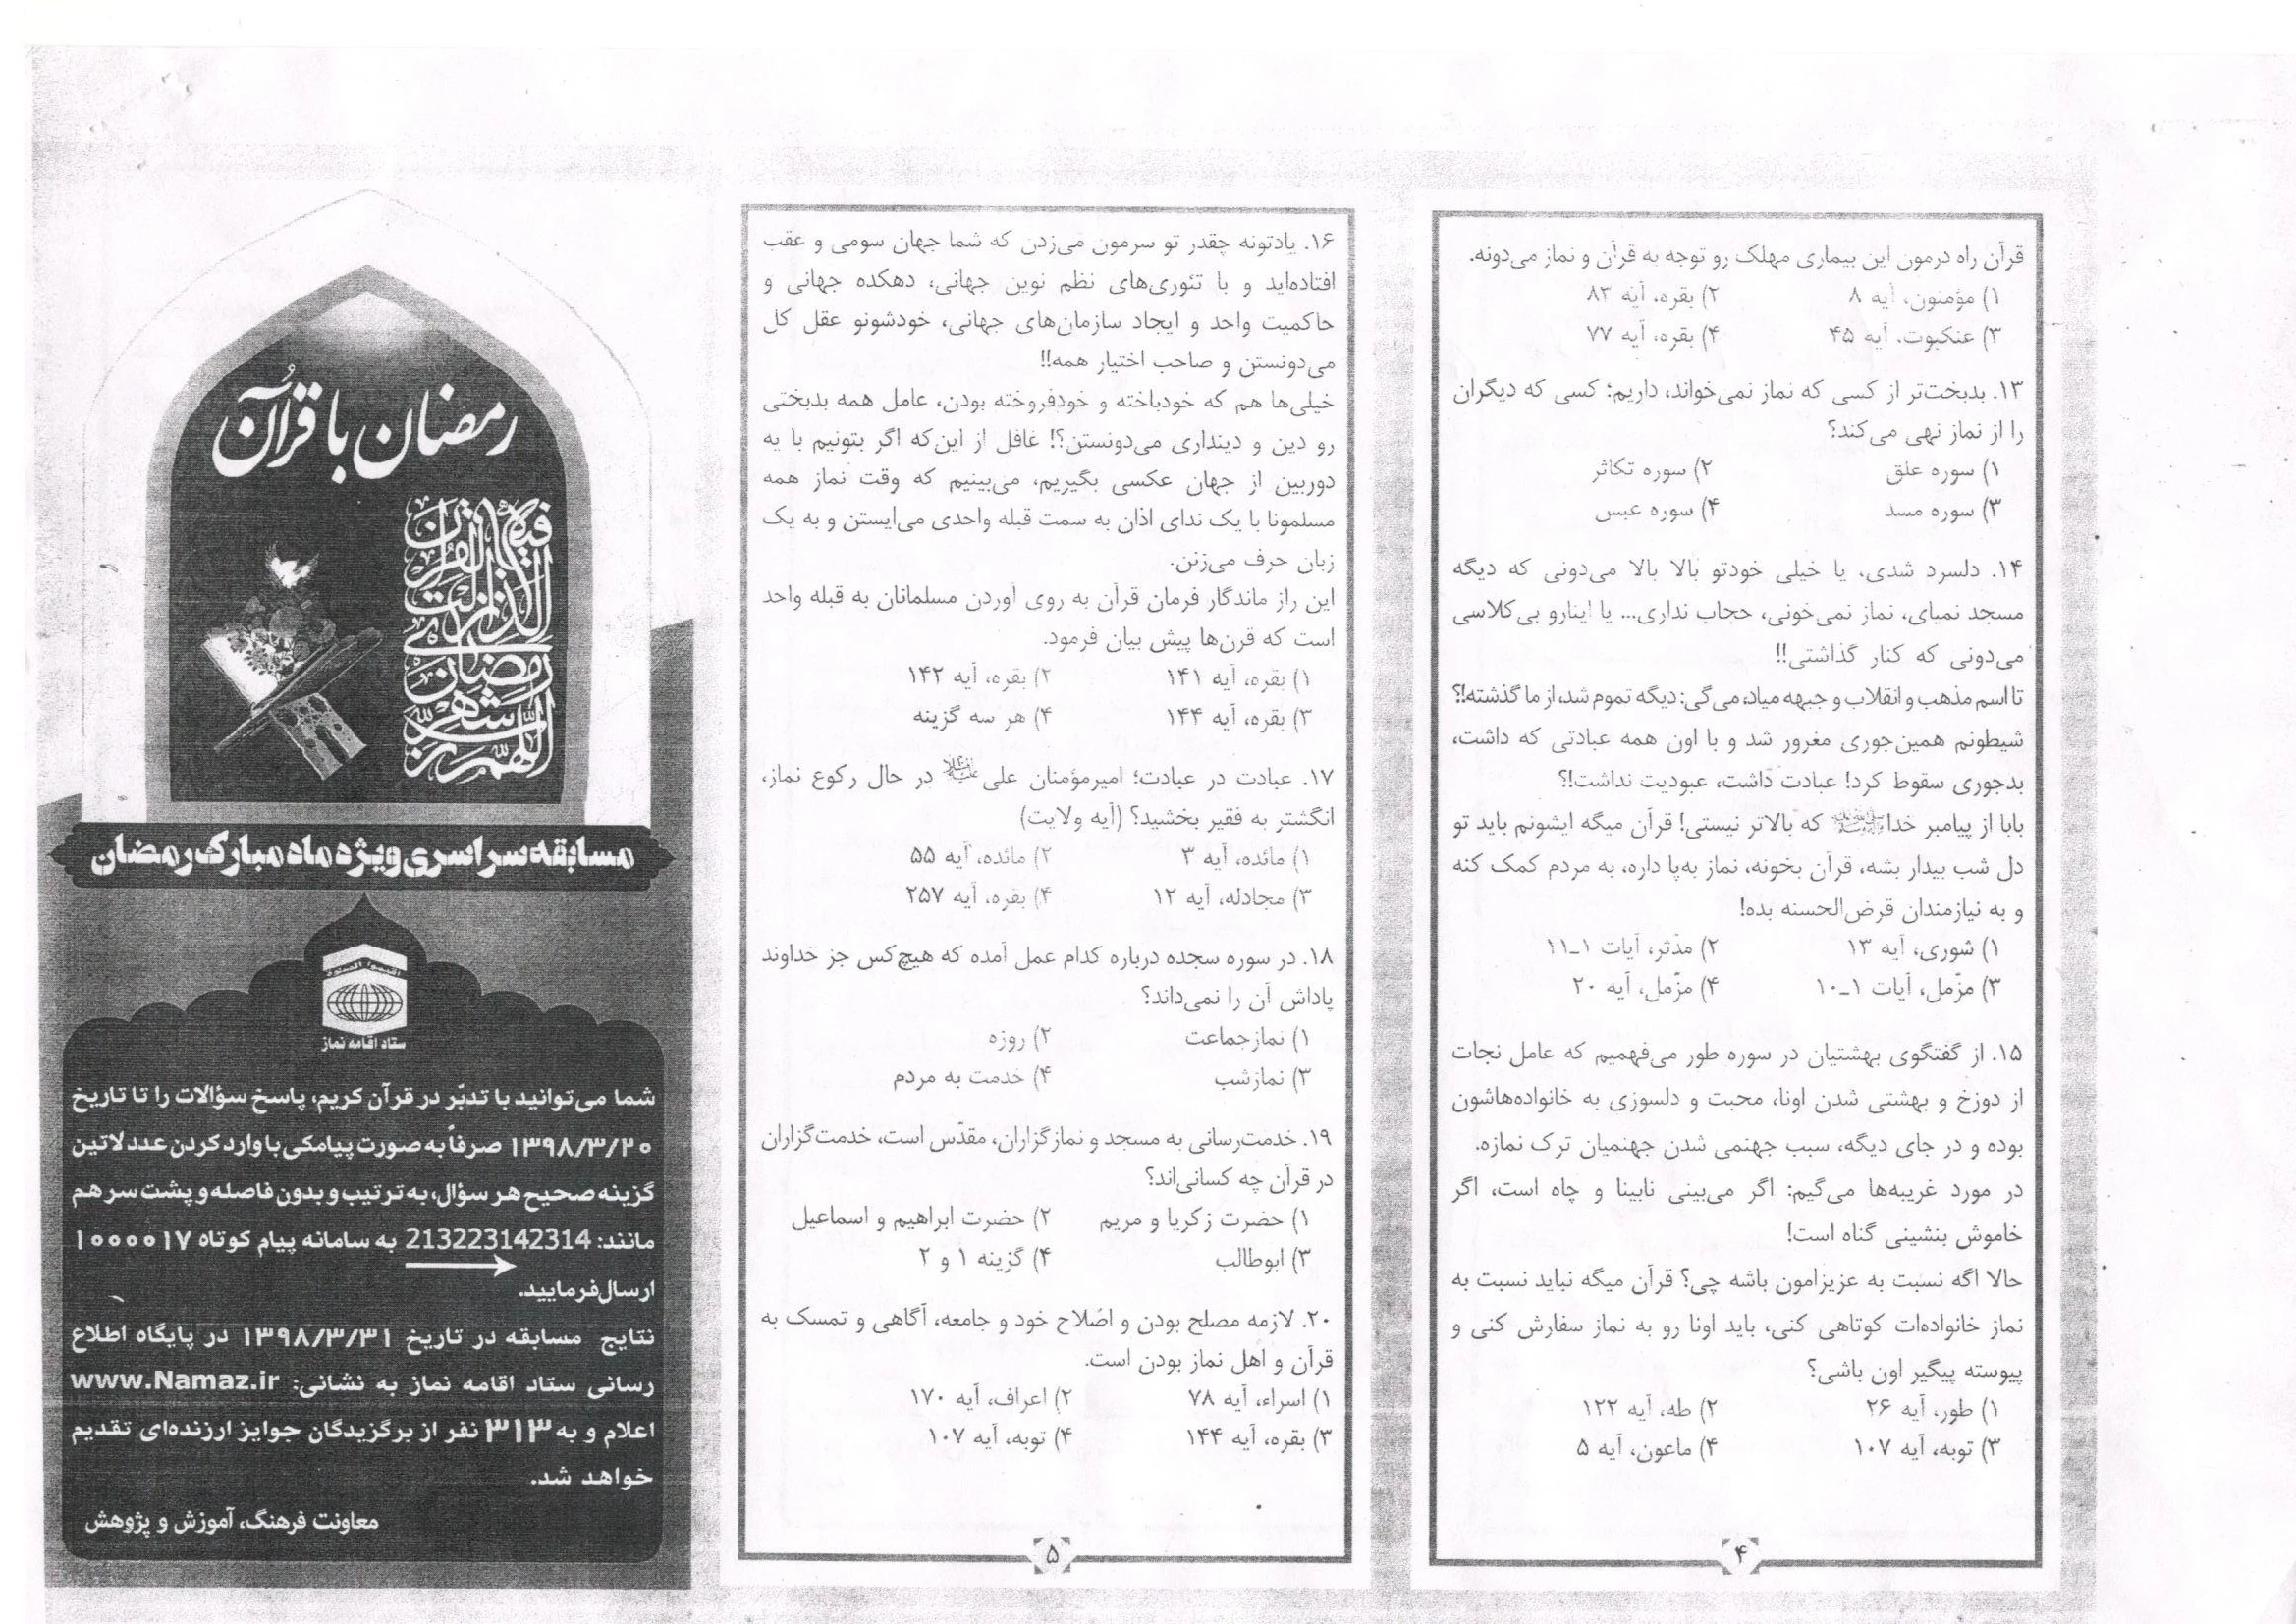 قرآن راه درمون این بیماری مهلک رو توجه به قرآن و نماز می‌دونه.
۱) مؤمنون، آیه ۸ ۲) بقره، آیه ۸۳
۳) عنکبوت، آیه ۴۵ ۴) بقره، آیه ۷۷
۱۳. بدبخت‌تر از کسی که نماز نمی‌خواند، داریم؛ کسی که دیگران
را از نماز نهی می‌کند؟
۱) سوره علق ۲) سوره تکاثر
۳) سوره مسد ۴) سوره عبس
۱۴. دلسرد شدی، یا خیلی خودتو بالا بالا می‌دونی که دیگه
مسجد نمیای، نماز نمی‌خونی، حجاب نداری... یا اینارو بی‌کلاسی
می‌دونی که کنار گذاشتی!!
تا اسم مذهب و انقلاب و جبهه میاد، می‌گی: دیگه تموم شد، از ما گذشته!؟
شیطونم همین‌جوری مغرور شد و با اون همه عبادتی که داشت،
بدجوری سقوط کرد! عبادت داشت، عبودیت نداشت!؟
بابا از پیامبر خدا که بالاتر نیستی! قرآن میگه ایشونم باید تو
دل شب بیدار بشه، قرآن بخونه، نماز به‌پا داره، به مردم کمک کنه
و به نیازمندان قرض‌الحسنه بده!
۱) شوری، آیه ۱۳ ۲) مدّثر، آیات ۱-۱۱
۳) مزّمل، آیات ۱-۱۰ ۴) مزّمل، آیه ۲۰
۱۵. از گفتگوی بهشتیان در سوره طور می‌فهمیم که عامل نجات
از دوزخ و بهشتی شدن اونا، محبت و دلسوزی به خانواده‌هاشون
بوده و در جای دیگه، سبب جهنمی شدن جهنمیان ترک نمازه.
در مورد غریبه‌ها می‌گیم: اگر می‌بینی نابینا و چاه است، اگر
خاموش بنشینی گناه است!
حالا اگه نسبت به عزیزامون باشه چی؟ قرآن میگه نباید نسبت به
نماز خانواده‌ات کوتاهی کنی، باید اونا رو به نماز سفارش کنی و
پیوسته پیگیر اون باشی؟
۱) طور، آیه ۲۶ ۲) طه، آیه ۱۲۲
۳) توبه، آیه ۱۰۷ ۴) ماعون، آیه ۵
۴
۱۶. یادتونه چقدر تو سرمون می‌زدن که شما جهان سومی و عقب
افتاده‌اید و با تئوری‌های نظم نوین جهانی، دهکده جهانی و
حاکمیت واحد و ایجاد سازمان‌های جهانی، خودشونو عقل کل
می‌دونستن و صاحب اختیار همه!!
خیلی‌ها هم که خودباخته و خودفروخته بودن، عامل همه بدبختی
رو دین و دینداری می‌دونستن؟! غافل از این‌که اگر بتونیم با یه
دوربین از جهان عکسی بگیریم، می‌بینیم که وقت نماز همه
مسلمونا با یک ندای اذان به سمت قبله واحدی می‌ایستن و به یک
زبان حرف می‌زنن.
این راز ماندگار فرمان قرآن به روی آوردن مسلمانان به قبله واحد
است که قرن‌ها پیش بیان فرمود.
۱) بقره، آیه ۱۴۱ ۲) بقره، آیه ۱۴۲
۳) بقره، آیه ۱۴۴ ۴) هر سه گزینه
۱۷. عبادت در عبادت؛ امیرمؤمنان علی در حال رکوع نماز،
انگشتر به فقیر بخشید؟ (آیه ولایت)
۱) مائده، آیه ۳ ۲) مائده، آیه ۵۵
۳) مجادله، آیه ۱۲ ۴) بقره، آیه ۲۵۷
۱۸. در سوره سجده درباره کدام عمل آمده که هیچ‌کس جز خداوند
پاداش آن را نمی‌داند؟
۱) نمازجماعت ۲) روزه
۳) نمازشب ۴) خدمت به مردم
۱۹. خدمت‌رسانی به مسجد و نمازگزاران، مقدّس است، خدمت‌گزاران
در قرآن چه کسانی‌اند؟
۱) حضرت زکریا و مریم ۲) حضرت ابراهیم و اسماعیل
۳) ابوطالب ۴) گزینه ۱ و ۲
۲۰. لازمه مصلح بودن و اصلاح خود و جامعه، آگاهی و تمسک به
قرآن و اهل نماز بودن است.
۱) اسراء، آیه ۷۸ ۲) اعراف، آیه ۱۷۰
۳) بقره، آیه ۱۴۴ ۴) توبه، آیه ۱۰۷
۵
رمضان با قرآن
اللهم رب شهر رمضان الذی انزلت فیه القرآن
مسابقه سراسری ویژه ماه مبارک رمضان
ستاد اقامه نماز
شما می‌توانید با تدبّر در قرآن کریم، پاسخ سؤالات را تا تاریخ
۱۳۹۸/۳/۲۰ صرفاً به صورت پیامکی با وارد کردن عدد لاتین
گزینه صحیح هر سؤال، به ترتیب و بدون فاصله و پشت سر هم
مانند: 213223142314 به سامانه پیام کوتاه ۱۰۰۰۰۱۷
ارسال فرمایید.
نتایج مسابقه در تاریخ ۱۳۹۸/۳/۳۱ در پایگاه اطلاع
رسانی ستاد اقامه نماز به نشانی: www.Namaz.ir
اعلام و به ۳۱۳ نفر از برگزیدگان جوایز ارزنده‌ای تقدیم
خواهد شد.
معاونت فرهنگ، آموزش و پژوهش